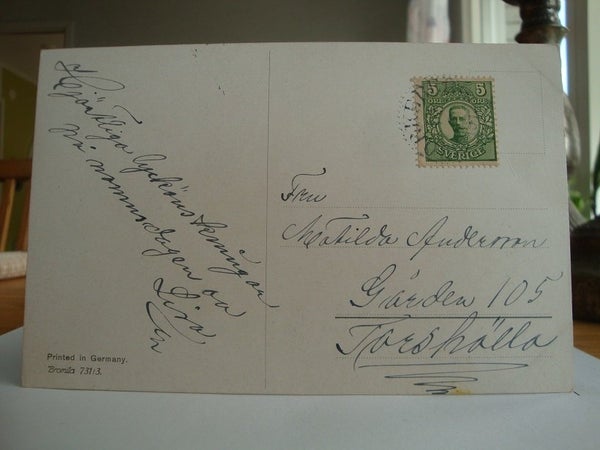 Hjärtliga lyckönskningar
på namnsdagen av
Lisa
5 5
ÖRE ÖRE
SVERIGE
Fru
Matilda Andersson
Gården 105
Torshälla
Printed in Germany.
731/3.